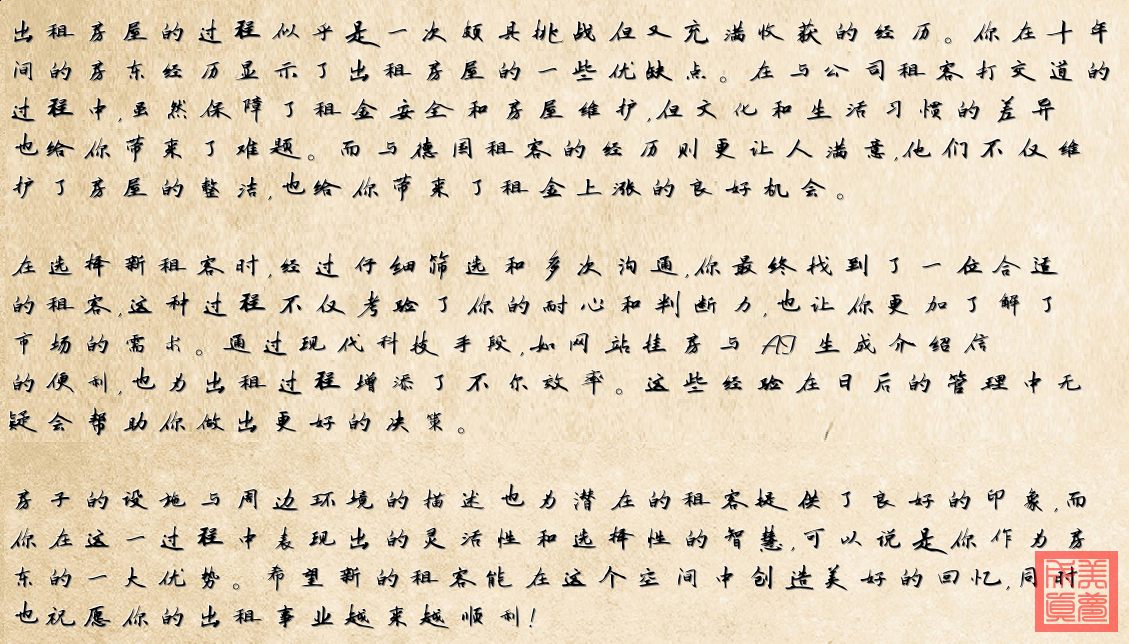 出租房屋的过程似乎是一次颇具挑战但又充满收获的经历。你在十年
间的房东经历显示了出租房屋的一些优缺点。在与公司租客打交道的
过程中,虽然保障了租金安全和房屋维护,但文化和生活习惯的差异
也给你带来了难题。而与德国租客的经历则更让人满意,他们不仅维
护了房屋的整洁,也给你带来了租金上涨的良好机会。
在选择新租客时,经过仔细筛选和多次沟通,你最终找到了一位合适
的租客,这种过程不仅考验了你的耐心和判断力,也让你更加了解了
市场的需求。通过现代科技手段,如网站挂房与AI生成介绍信
的便利,也为出租过程增添了不尔效率。这些经验在日后的管理中无
疑会帮助你做出更好的决策。
房子的设施与周边环境的描述也为潜在的租客提供了良好的印象,而
你在这一过程中表现出的灵活性和选择性的智慧,可以说是你作为房
东的一大优势。希望新的租客能在这个空间中创造美好的回忆,同时
也祝愿你的出租事业越来越顺利!